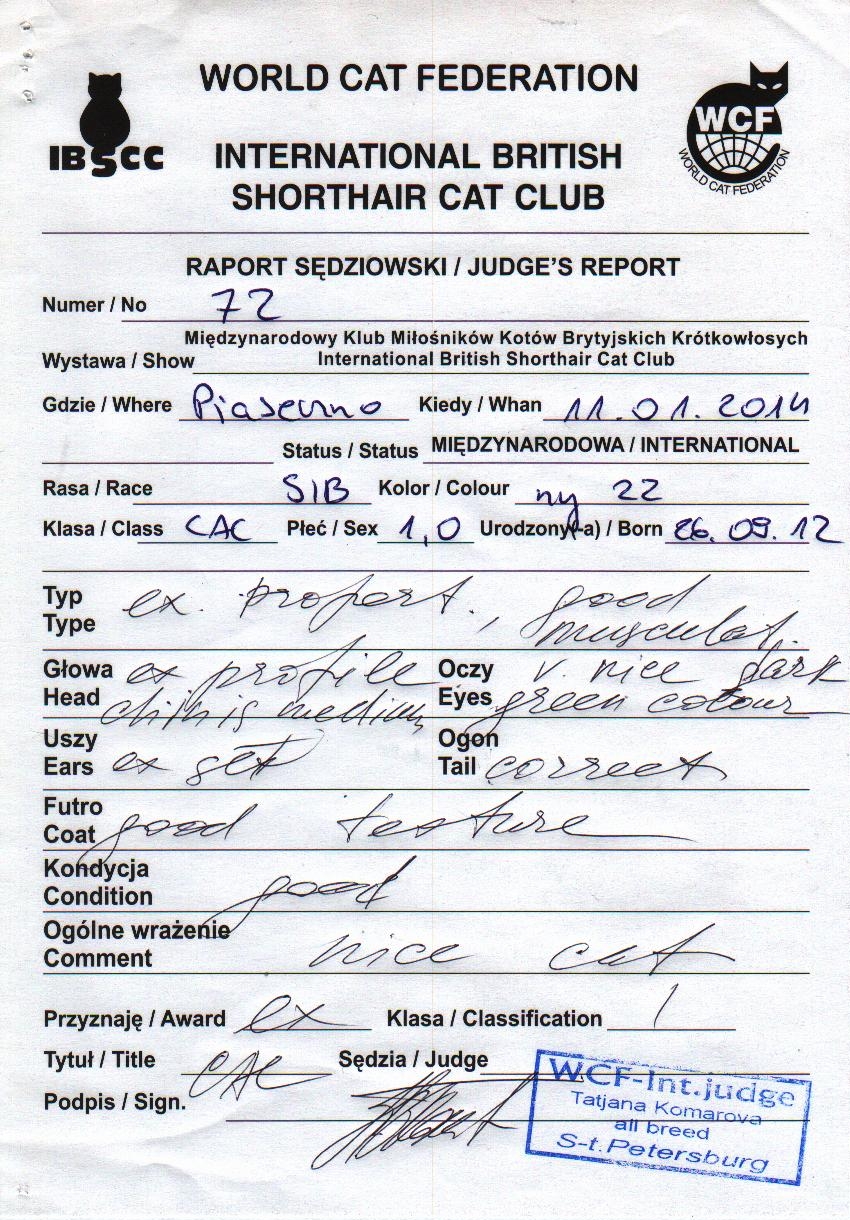 WORLD CAT FEDERATION
IBSCC
WCF
WORLD CAT FEDERATION
INTERNATIONAL BRITISH
SHORTHAIR CAT CLUB
RAPORT SĘDZIOWSKI / JUDGE'S REPORT
Numer / No 72
Międzynarodowy Klub Miłośników Kotów Brytyjskich Krótkowłosych
Wystawa / Show International British Shorthair Cat Club
Gdzie / Where Piaseczno Kiedy / Whan 11.01.2014
Status / Status MIĘDZYNARODOWA / INTERNATIONAL
Rasa / Race SIB Kolor / Colour ny 22
Klasa / Class CAC Płeć / Sex 1,0 Urodzony(-a) / Born 26.09.12
Typ ex. proport., good
Type musculat.
Głowa ex profile Oczy v. nice dark
Head chin is medium Eyes green colour
Uszy Ogon
Ears ex set Tail correct
Futro
Coat good texture
Kondycja
Condition good
Ogólne wrażenie
Comment nice cat
Przyznaję / Award ex Klasa / Classification 1
Tytuł / Title CAC Sędzia / Judge
Podpis / Sign.
WCF-Int.judge
Tatjana Komarova
all breed
S-t.Petersburg